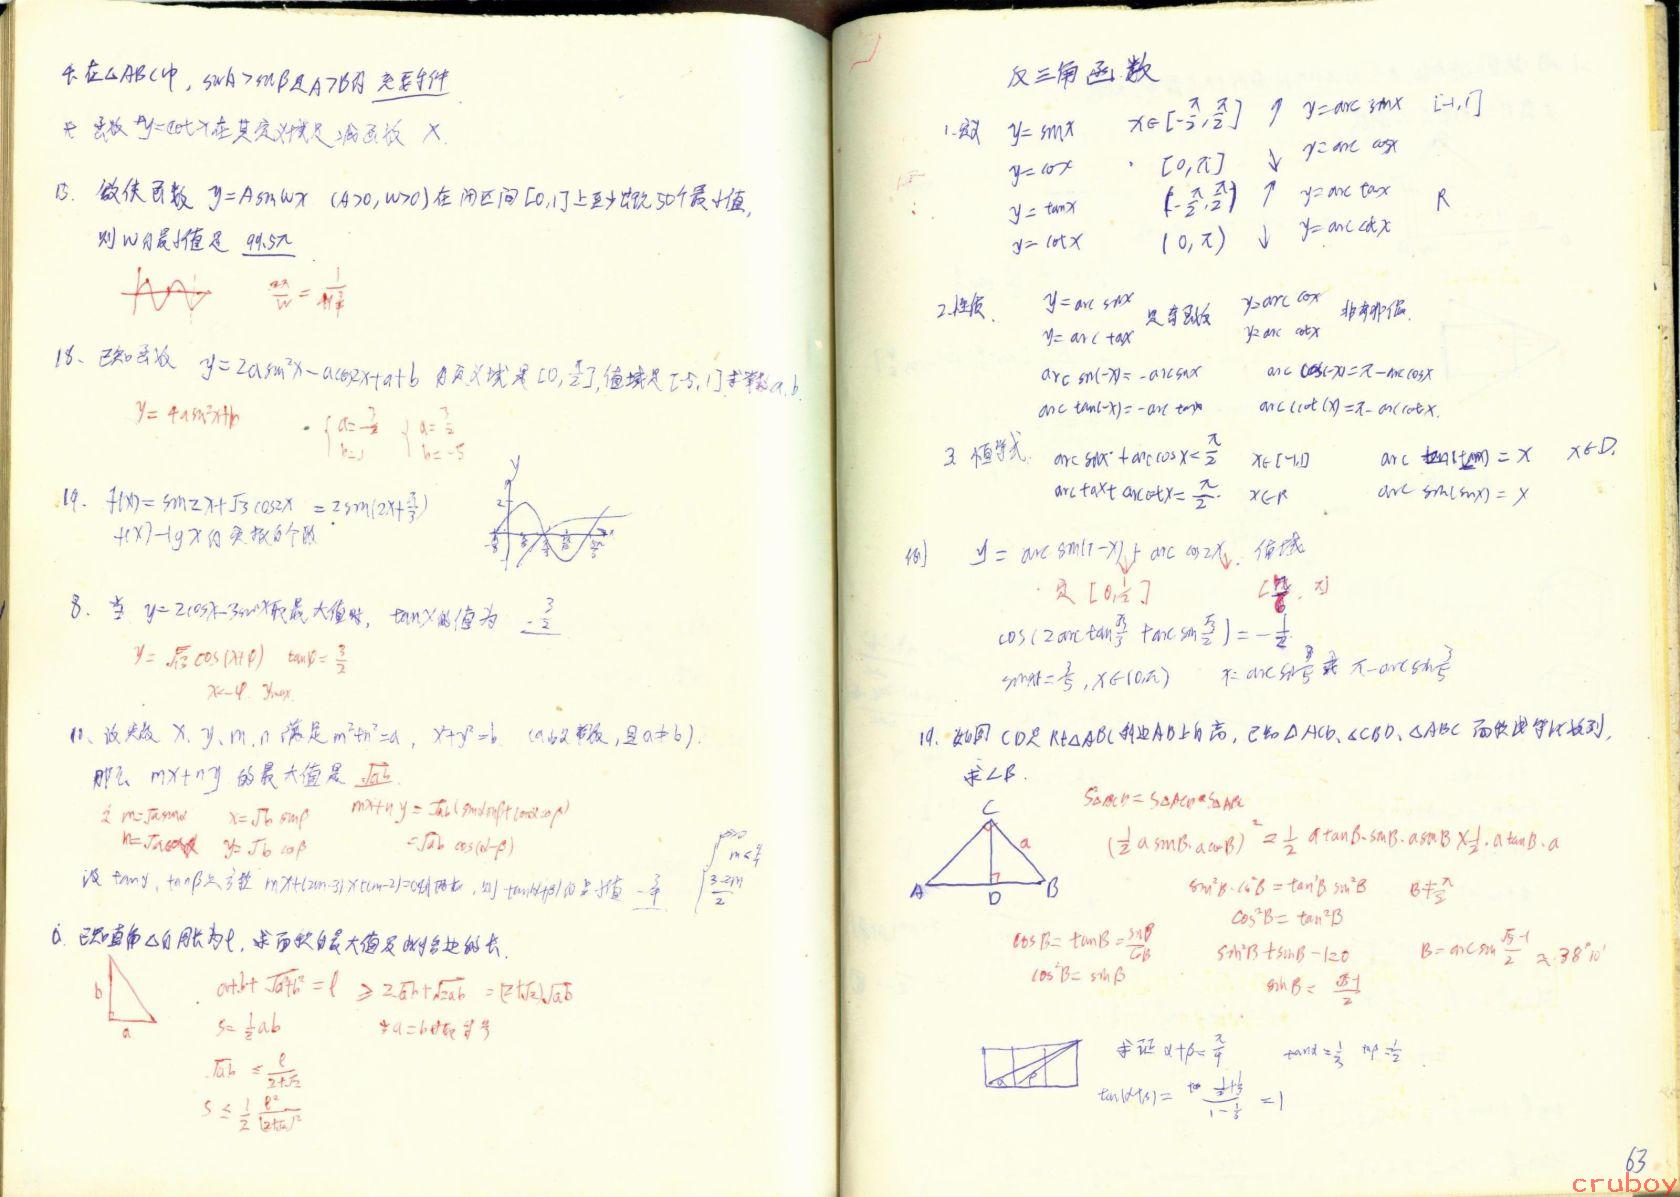 在△ABC中, sinA>sinB是A>B的 充要条件
函数 y=cotx在其定义域是减函数 X.
13. 做使函数 y=Asinwx (A>0, w>0) 在闭区间[0,1]上至少出现50个最小值,
则w的最小值是 99.5π
2π/w = 
18、已知函数 y=2asin²x-acos2x+a+b 的定义域是[0,π/2],值域是[-5,1]求常数a.b.
y=4asin²x+b
{a=-3/2 b=1 {a=3/2 b=-5
19. f(x)=sin2x+√3cos2x =2sin(2x+π/3)
f(x)-lgx的实根的个数
y
2
8. 当 y=2cosx-3sinx取最大值时, tanx的值为 -3/2
y=√13cos(x+φ) tanφ=3/2
x=-φ ymax
10、设实数 x、y、m、n 满足m²+n²=a, x²+y²=b (ab又常数,且a≠b).
那么 mx+ny 的最大值是 √ab
m=√asinα x=√b sinβ mx+ny=√ab(sinαsinβ+cosαcosβ)
n=√acosα y=√b cosβ =√ab cos(α-β)
设 tanα, tanβ是方程 mx²+(2m-3)x+(m-2)=0的两根, 则 tan(α+β)的最小值 -3/4
3-2m/2
已知直角△的周长为l, 求面积的最大值及此时各边的长.
b
a
a+b+√a²+b² =l ≥2√ab+√2ab =(2+√2)√ab
S=1/2ab 当a=b时取等号
√ab ≤ l/2+√2
S ≤ 1/2 l²/(2+√2)²
反三角函数
1.定义 y=sinx x∈[-π/2,π/2] ↑ y=arc sinx [-1,1]
y=cosx [0,π] ↓ y=arc cosx
y=tanx (-π/2,π/2) ↑ y=arc tanx R
y=cotx (0,π) ↓ y=arc cotx
2.性质. y=arc sinx y=arc tanx 是奇函数 y=arc cosx y=arc cotx 非奇非偶.
arc sin(-x)=-arcsinx arc cos(-x)=π-arccosx
arc tan(-x)=-arc tanx arc cot(-x)=π-arccotx.
3. 恒等式. arc sinx+arccosx=π/2 x∈[-1,1] arc tan(tanx)=x x∈D.
arctanx+arccotx=π/2. x∈R arc sin(sinx)=x
例 y=arc sin(1-x)+arc cos2x. 值域
定[0,1/2] [π/6, π]
cos(2arctan√3/3+arcsin√3/2)=-1/2
sinx=3/5, x∈(0,π) x=arcsin3/5或 π-arcsin3/5
19. 如图 CD是Rt△ABC斜边AB上的高, 已知△ACD、△CBD、△ABC 面积成等比数列,
求∠B.
C
A
D
B
a
S△BCD²=S△ACD·S△ABC
(1/2 a sinB·acosB)²=1/2 atanB·sinB·asinB×1/2·atanB·a
sin²B·cos²B=tan²B sin²B B≠π/2
cos²B=tan²B
cosB=tanB=sinB/cosB sin²B+sinB-1=0 B=arcsin √5-1/2 ≈38°10′
cos²B=sinB sinB= √5-1/2
α
β
求证 α+β=π/4 tanα=1/3 tanβ=1/2
tan(α+β)= =1
63
cruboy